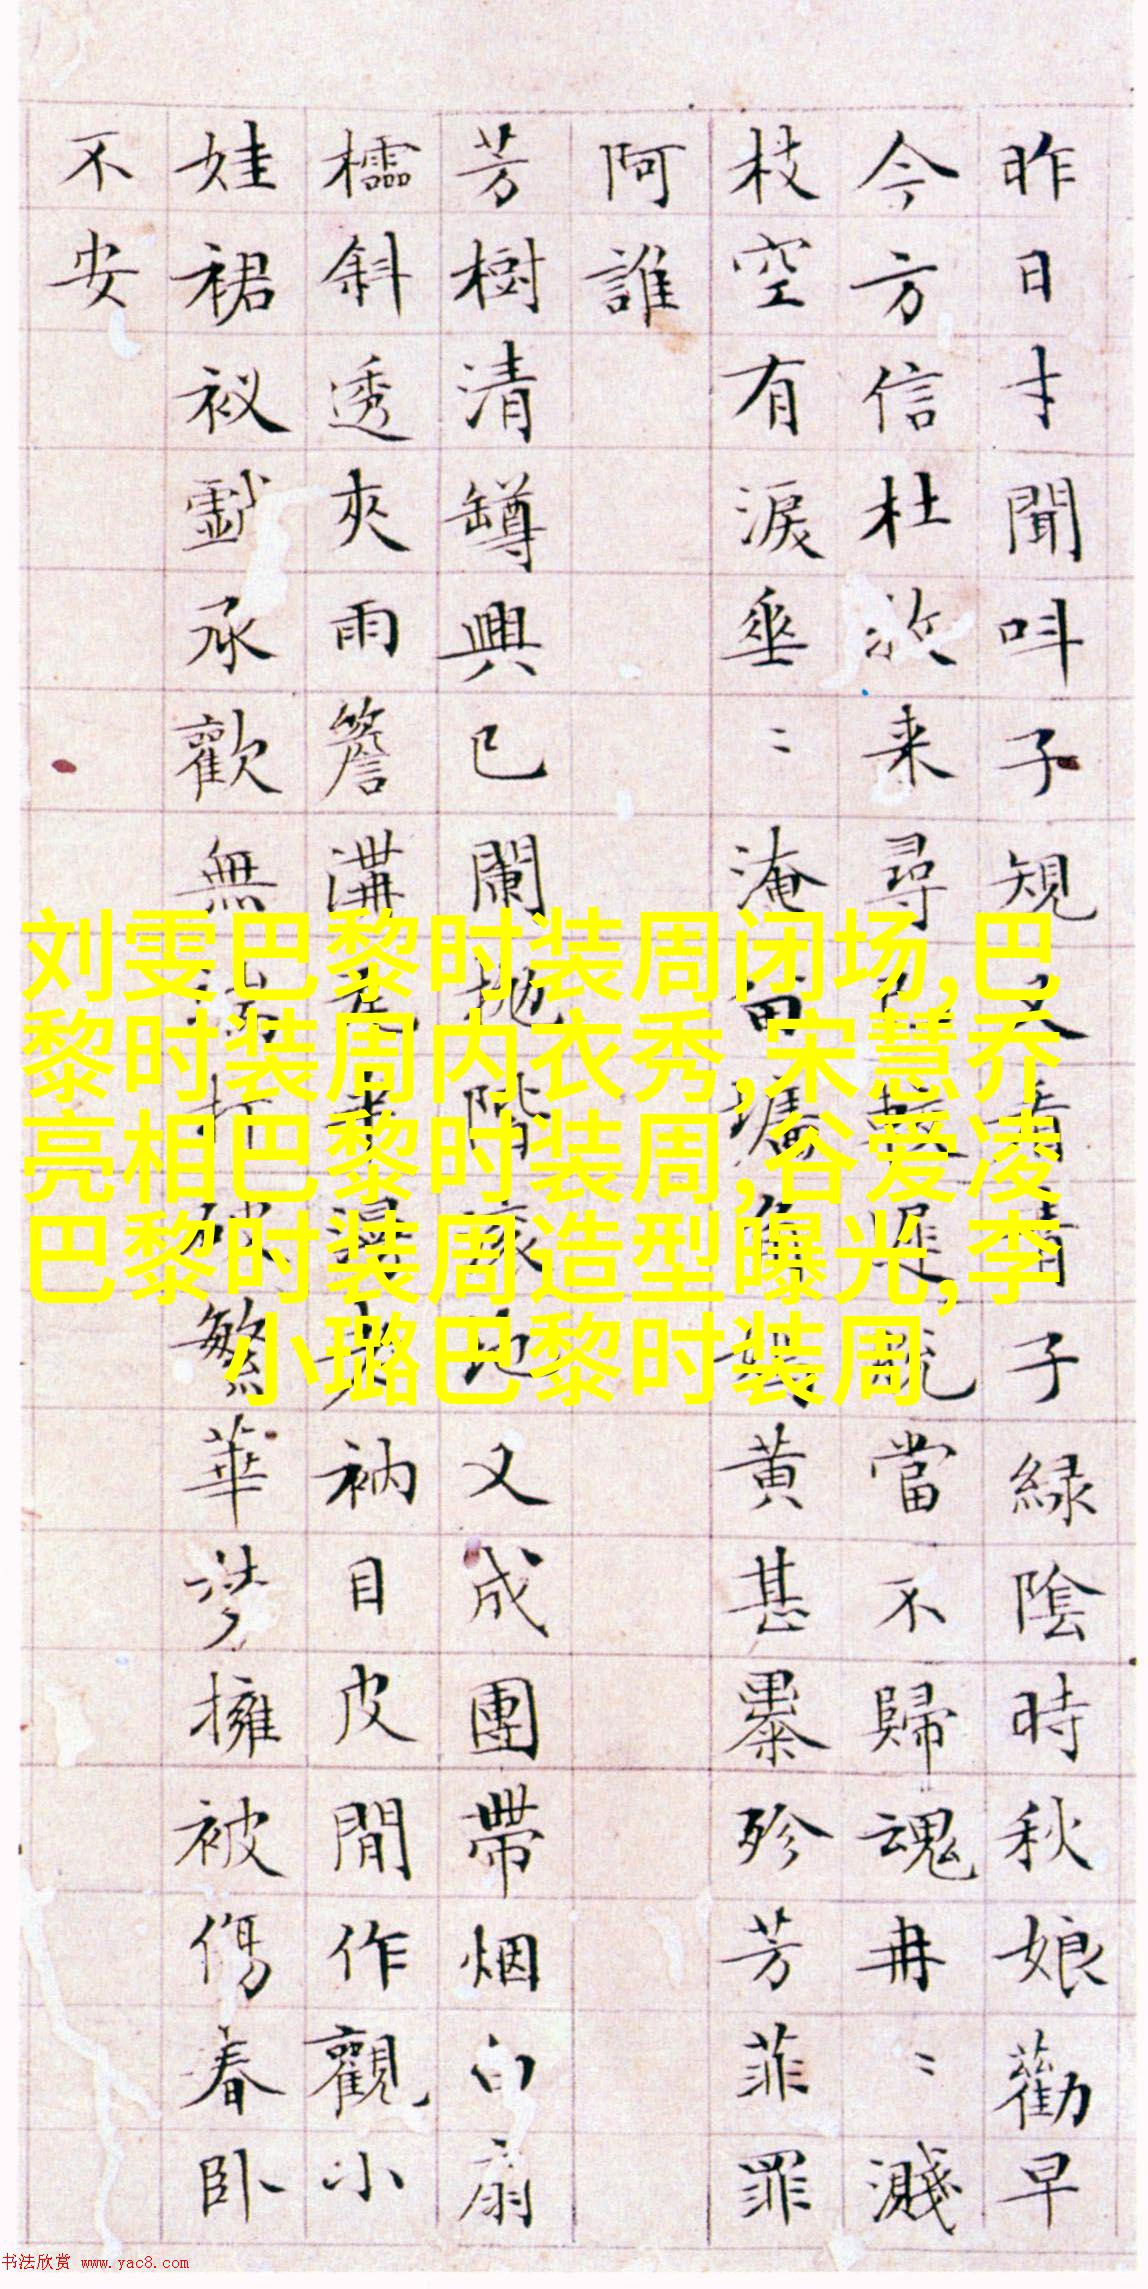 昨日才聞呌子規又看青子緑陰時秋娘勸早
今方信杜牧来尋較遲當不歸魂冉〻濺
枝空有淚垂〻淹留墻角黄甚暴殄芳菲罪
阿誰
芳樹清罇興已闌抛階滚地又成團帶烟白扇
櫺斜透夾雨簷溝老衲目皮閒作觀小
娃裙衩戲承歡無端打破繁華夢擁被傷春卧
不安
刘雯巴黎时装周闭场,巴
黎时装周内衣秀,宋慧乔
亮相巴黎时装周,谷爱凌
巴黎时装周造型曝光,李
小璐巴黎时装周
书法欣赏 www.yac8.com